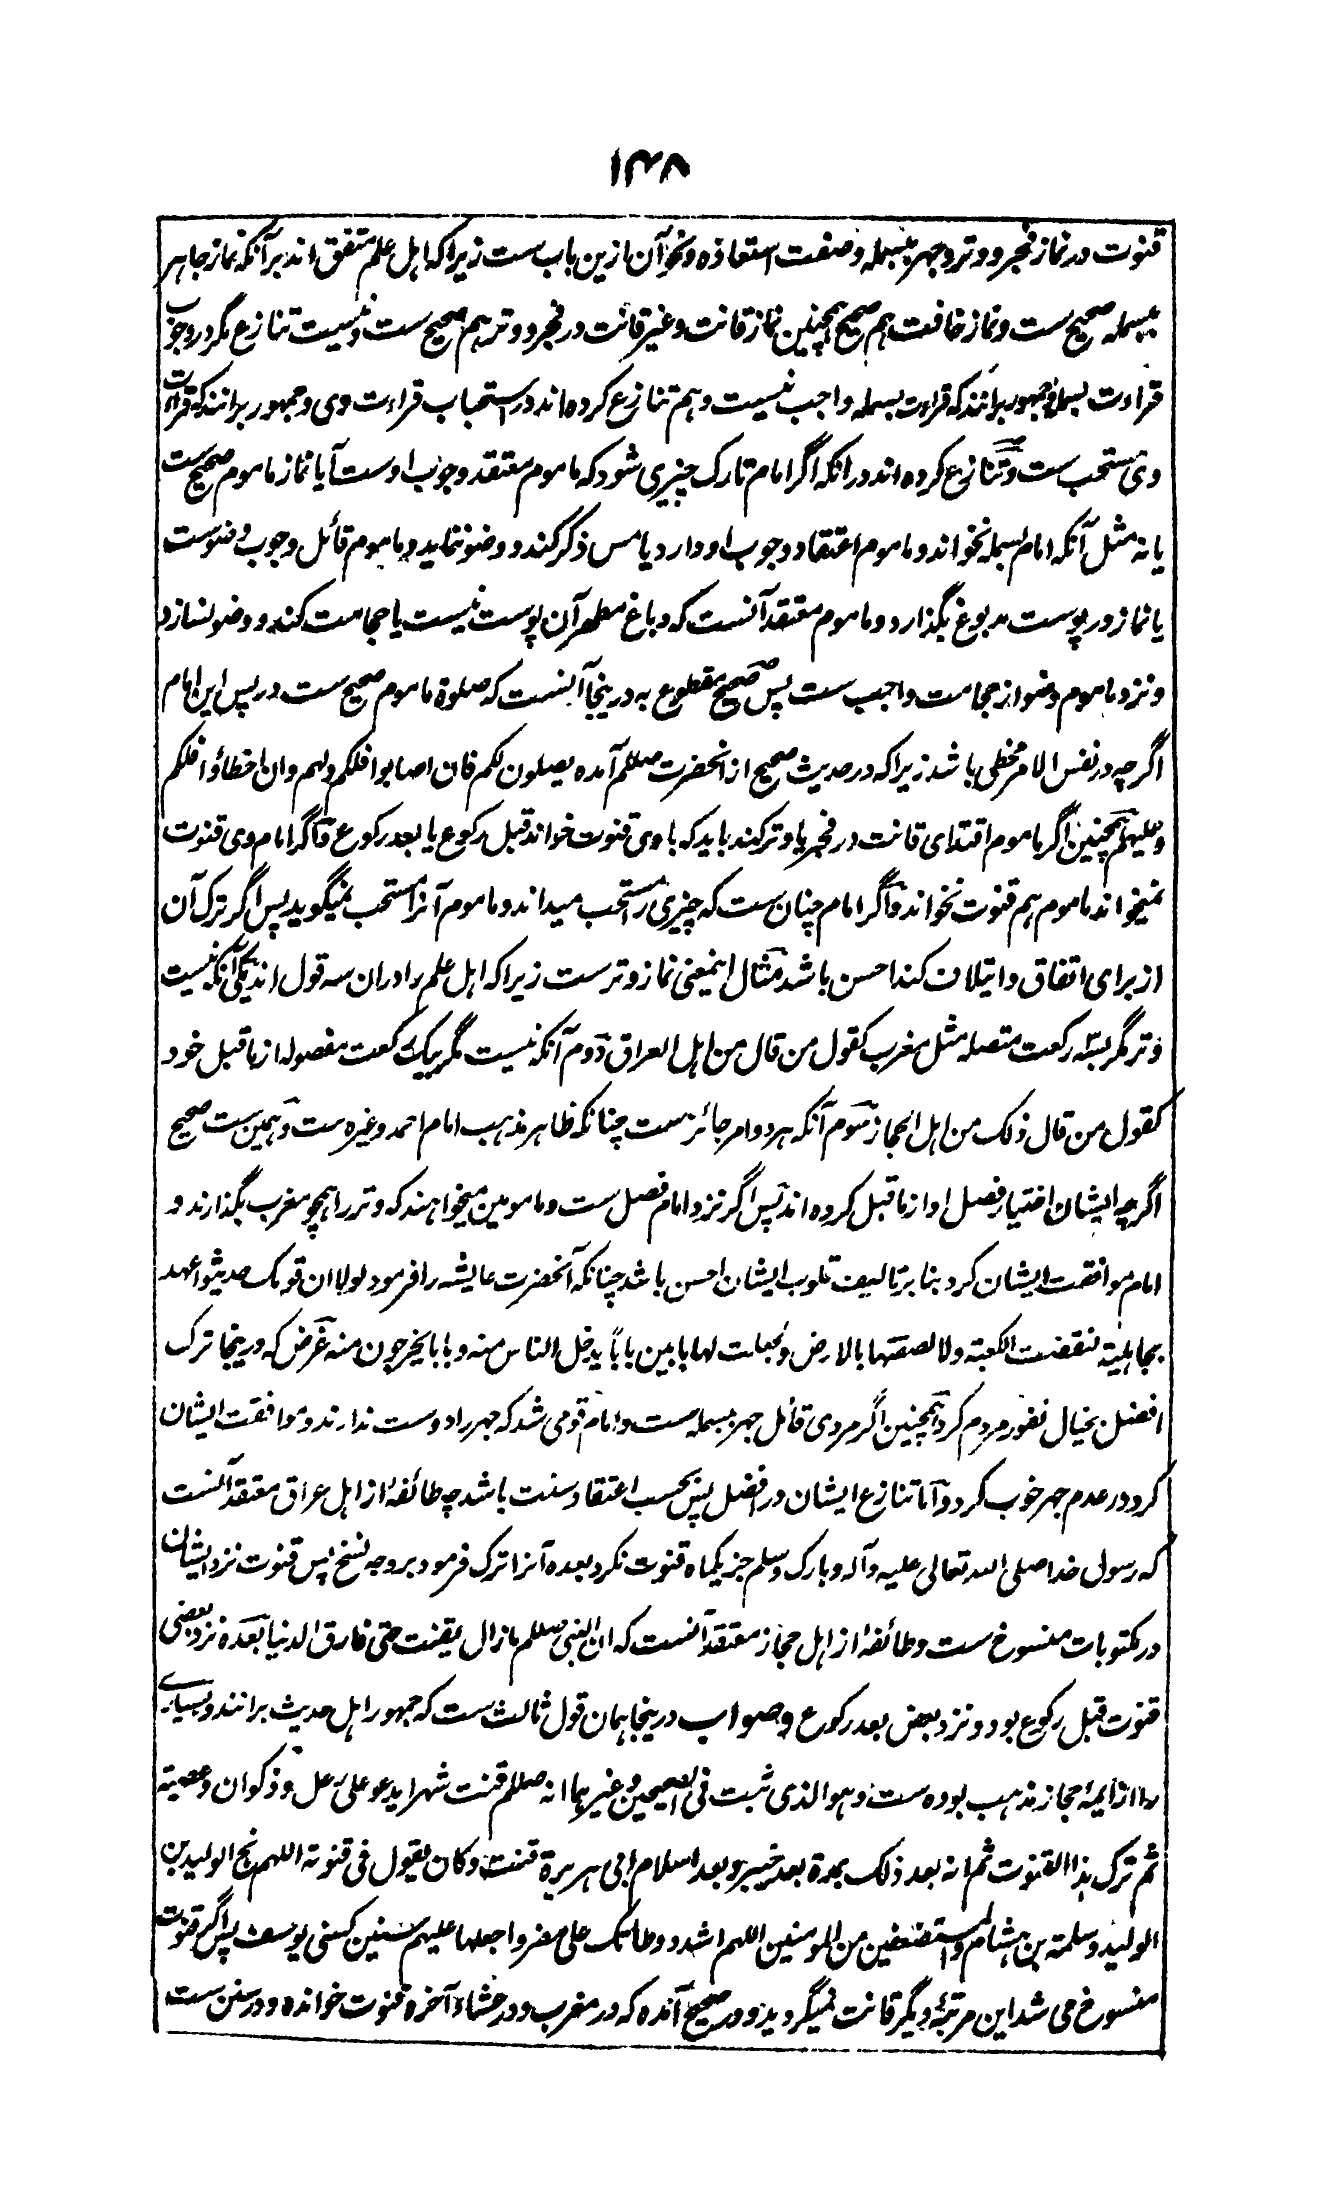 ۱۳۸
قنوت در نماز فجر و وتر و جهر ببسمله و صفت استعاذه و نحو آن ازین باب ست زیرا که اهل علم متفق اند بر آنکه نماز جاهر
ببسمله صحیح ست و نماز خافت هم صحیح همچنین نماز قانت و غیر قانت در فجر و وتر هم صحیح ست و نیست تنازع مگر در وجوب
قراءت بسمله و جمهور برانند که قراءت بسمله واجب نیست و هم تنازع کرده اند در استحباب قراءت وی و جمهور برانند که قراءت
وی مستحب ست و تنازع کرده اند در انکه اگر امام تارک چیزی شود که ماموم معتقد وجوب اوست آیا نماز ماموم صحیح ست
یا نه مثل آنکه امام بسمله نخواند و ماموم اعتقاد وجوب او دارد یا مس ذکر کند و وضو ننماید و ماموم قائل وجوب وضوست
یا نماز در پوست مدبوغ بگذارد و ماموم معتقد آنست که دباغ مطهر آن پوست نیست یا حجامت کند و وضو نسازد
و نزد ماموم وضو از حجامت واجب ست پس صحیح مقطوع به درینجا آنست که صلوة ماموم صحیح ست در پس این امام
اگرچه در نفس الامر مخطی باشد زیرا که در حدیث صحیح از انحضرت صللم آمده یصلون لکم فان اصابوا فلکم ولهم وان اخطاؤا فلکم
وعلیهم همچنین اگر ماموم اقتدای قانت در فجر یا وتر کند باید که با وی قنوت خواند قبل رکوع یا بعد رکوع و اگر امام وی قنوت
نمیخواند ماموم هم قنوت نخواند و اگر امام چنان ست که چیزی را مستحب میداند و ماموم آنرا مستحب نمیگوید پس اگر ترک آن
از برای اتفاق و ایتلاف کند احسن باشد مثال اینمعنی نماز وتر ست زیرا که اهل علم را دران سه قول اند یکی آنکه نیست
وتر مگر بسه رکعت متصله مثل مغرب کقول من قال من اهل العراق دوم آنکه نیست مگر بیک رکعت مفصوله از ماقبل خود
کقول من قال ذلک من اهل الحجاز سوم آنکه هر دو امر جائز ست چنانکه ظاهر مذهب امام احمد و غیره ست و همین ست صحیح
اگرچه ایشان اختیار فصل او از ماقبل کرده اند پس اگر نزد امام فصل ست و مامومین میخواهند که وتر را همچو مغرب بگذارند و
امام موافقت ایشان کرد بنا بر تالیف قلوب ایشان احسن باشد چنانکه آنحضرت عایشه را فرمود لولا ان قومک حدیثوا عهد
بجاهلیة لنقضت الکعبة ولالصقتها بالارض ولجعلت لها بابین بابًا یدخل الناس منه وبابا یخرجون منه غرض که درینجا ترک
افضل بخیال نفور مردم کرد همچنین اگر مردی قائل جهر ببسمله ست و امام قومی شد که جهر را دوست ندارند و موافقت ایشان
کرد در عدم جهر خوب کرد و اما تنازع ایشان در افضل پس بحسب اعتقاد سنت باشد چه طائفهٔ از اهل عراق معتقد آنست
که رسول خدا صلی الله تعالی علیه وآله و بارک وسلم جز یکماه قنوت نکرد بعده آنرا ترک فرمود بر وجه نسخ پس قنوت نزد ایشان
در مکتوبات منسوخ ست و طائفهٔ از اهل حجاز معتقد آنست که ان النبی صللم مازال یقنت حتی فارق الدنیا بعده نزد بعضی
قنوت قبل رکوع بود و نزد بعض بعد رکوع و صواب درینجا همان قول ثالث ست که جمهور اهل حدیث برانند و بسیاری
را از ایمهٔ حجاز مذهب بوده ست وهو الذی ثبت فی الصحیحین وغیرهما انه صللم قنت شهرا یدعو علی رعل وذکوان وعصیة
ثم ترک هذا القنوت ثم انه بعد ذلک بمدة بعد خیبر وبعد اسلام ابی هریرة قنت وکان یقول فی قنوته اللهم نج الولید بن
الولید وسلمة بن هشام والمستضعفین من المومنین اللهم اشدد وطاتک علی مضر واجعلها علیهم سنین کسنی یوسف پس اگر قنوت
منسوخ می شد این مرتبهٔ دیگر قانت نمیگردید و در صحیح آمده که در مغرب و در عشاء آخره قنوت خوانده و در سنن ست